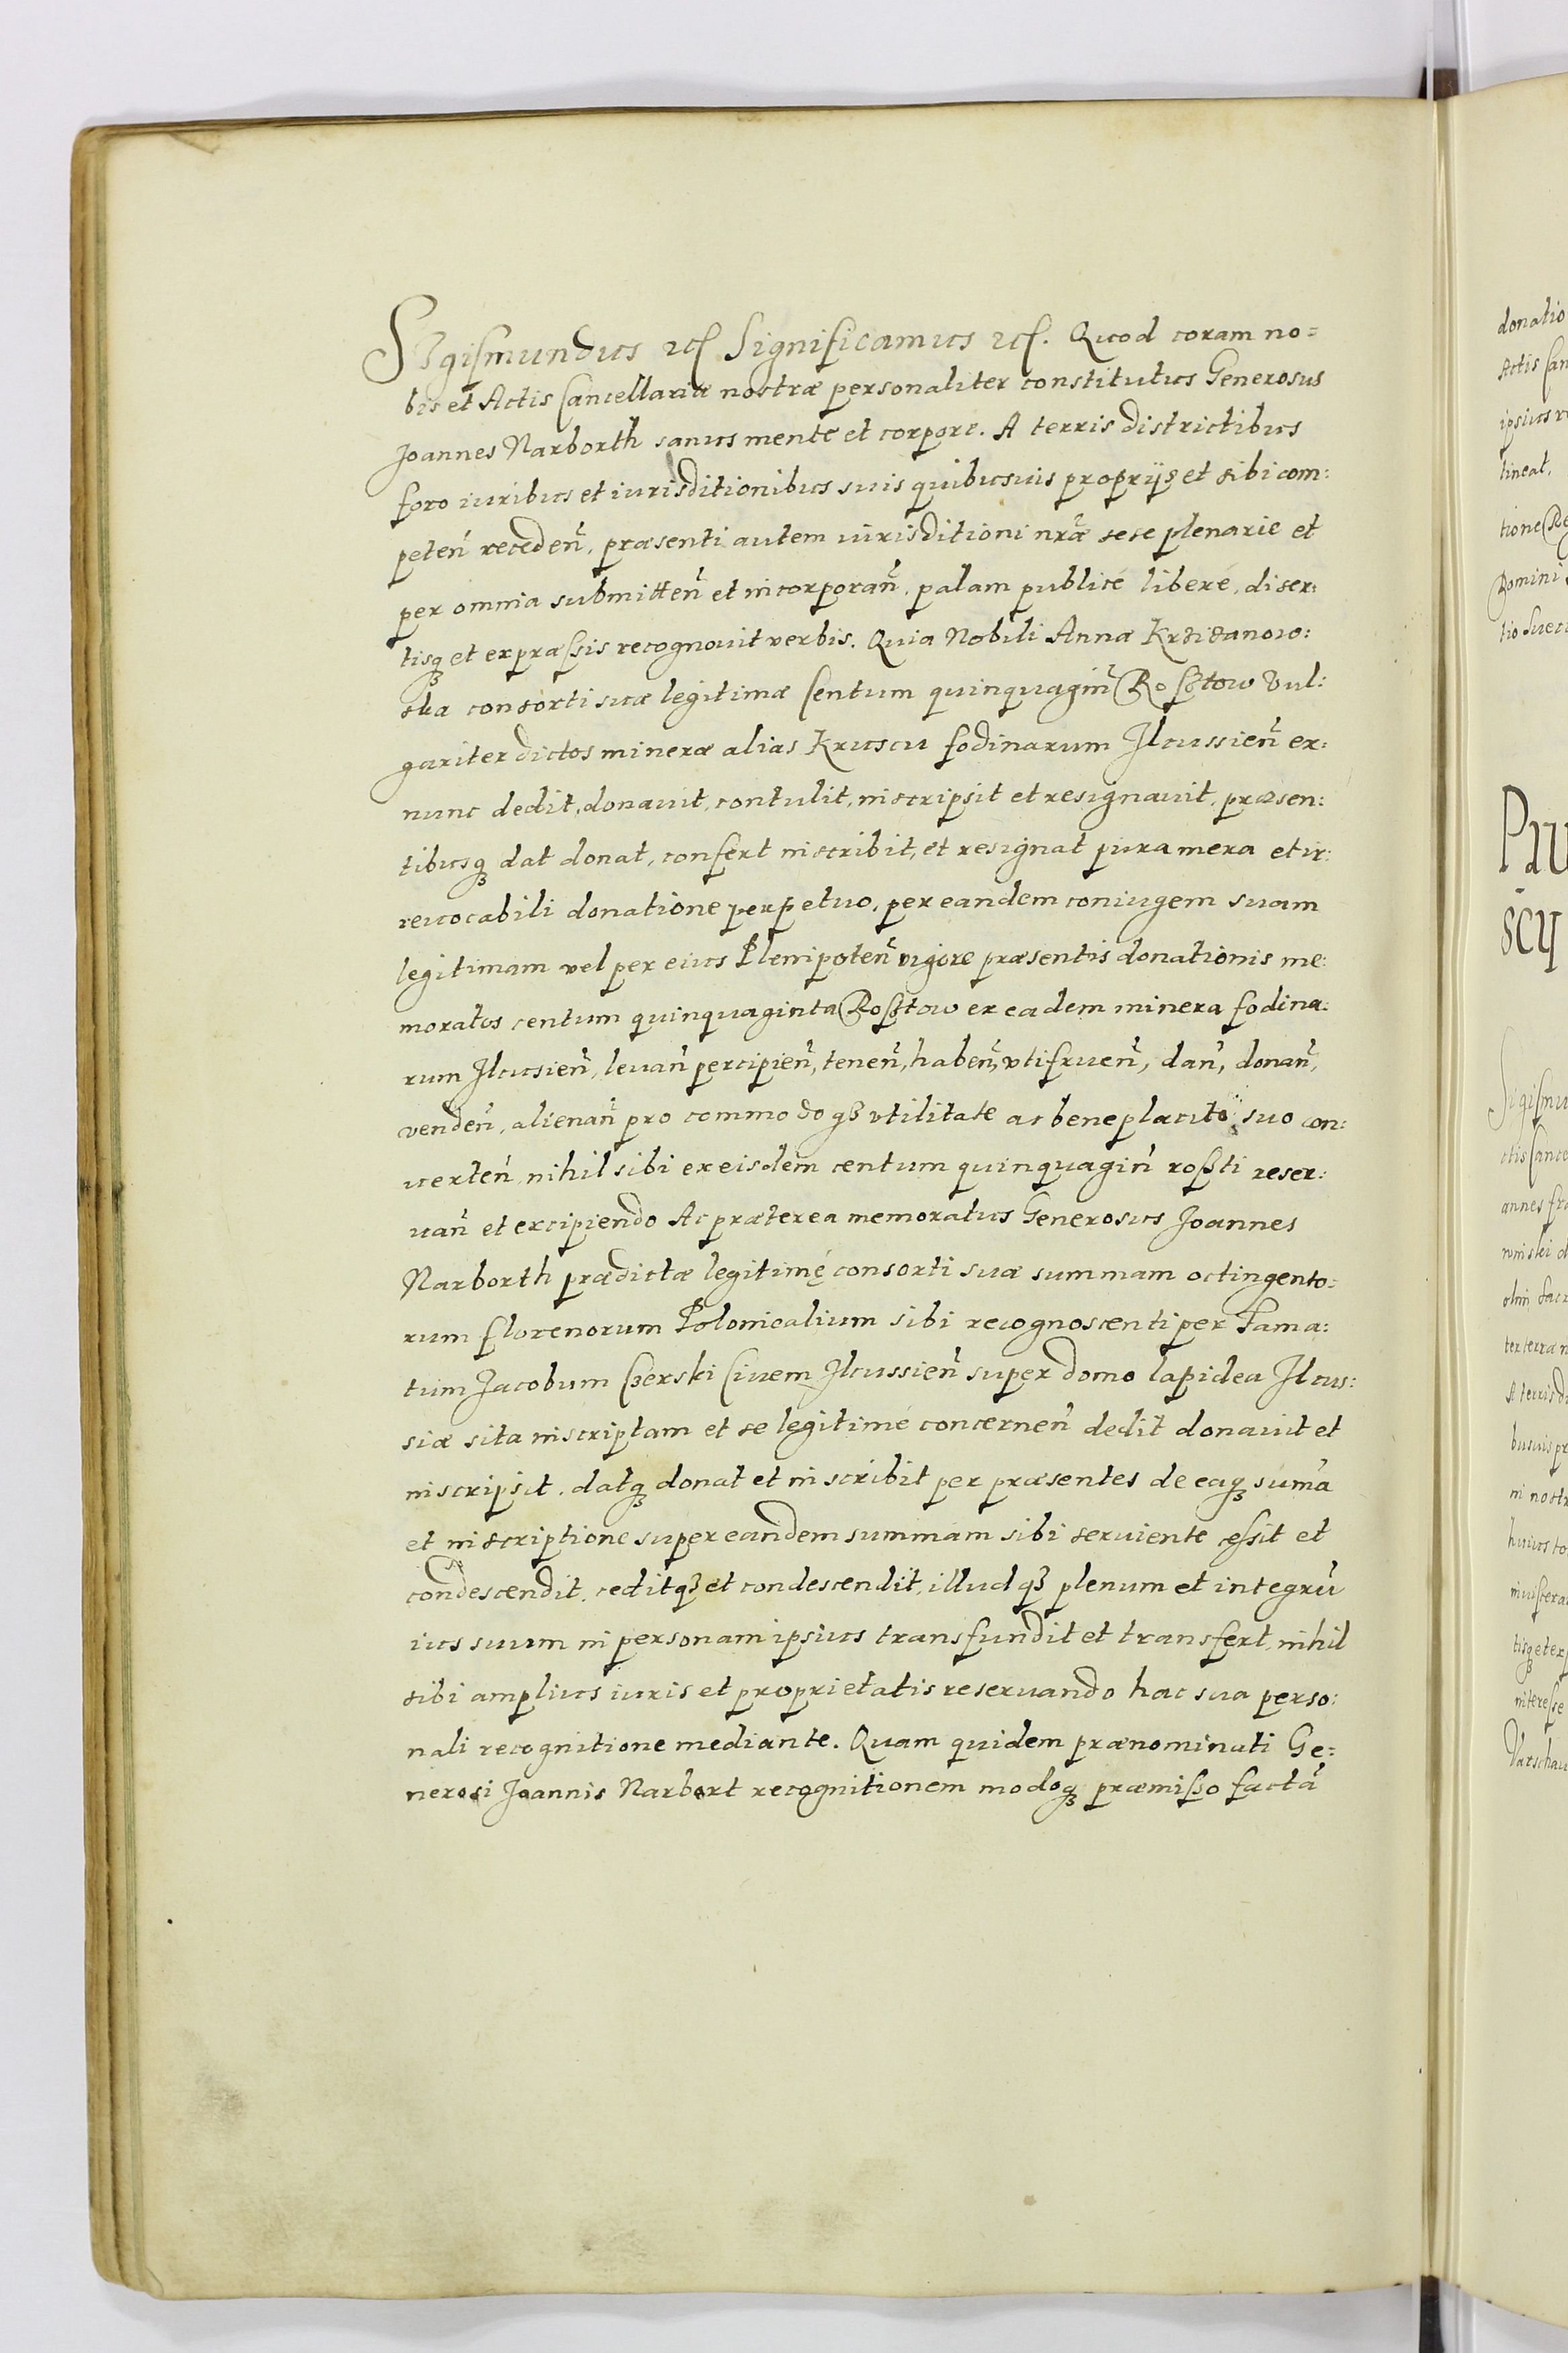 Sigismundus etc. Significamus etc. Quod coram no=
bis et Actis Cancellariæ nostræ personaliter constitutus Generosus
Joannes Narborth sanus mente et corpore. A terris districtibus
foro iuribus et iurisditionibus suis quibusuis proprijs et sibi com:
peten̄ receden̄, præsenti autem iurisditioni nr̄æ sese plenarie et
per omnia submitten̄ et incorporan̄, palam publicé liberé, diser:
tisq et expræssis recognouit verbis. Quia Nobili Annæ Krzizanow:
ska consorti suæ legitimæ Centum quinquagin̄ Rosztow vul:
gariter dictos mineræ alias Kruscu fodinarum Jlcussien̄ ex:
nunc dedit, donauit, contulit, inscripsit et resignauit, præsen:
tibusq dat donat, confert inscribit, et resignat pura mera et ir:
reuocabili donatione perpetuo, per eandem coniugem suam
legitimam vel per eius Plenipoten̄ vigore præsentis donationis me:
moratos centum quinquaginta Rosztow ex eadem minera fodina:
rum Jlcusien̄, leuan̄ percipien̄, tenen̄, haben̄, vtifruen̄, dan̄, donan̄,
venden̄, alienan̄ pro commodo qꝫ vtilitate ac beneplacito suo con:
uerten̄ nihil sibi ex eisdem centum quinquagin̄ roszti reser:
uan̄ et excipiendo Ac præterea memoratus Generosus Joannes
Narborth prædictæ legitimę consorti suæ summam octingento=
rum florenorum Polonicalium sibi recognoscenti per Fama:
tum Jacobum Czerski Ciuem Jlcussien̄ super domo lapidea Jlcus:
siæ sita inscriptam et se legitimé concernen̄ dedit donauit et
inscripsit, datq donat et inscribit per præsentes de eaq sum̄a
et inscriptione super eandem summam sibi seruiente cessit et
condescendit, ceditqꝫ et condescendit, illudqꝫ plenum et integrū
ius suum in personam ipsius transfundit et transfert, nihil
sibi amplius iuris et proprietatis reseruando hac sua perso:
nali recognitione mediante. Quam quidem prænominati Ge:
nerosi Joannis Narbort recognitionem modoq præmisso factā
donatio
Actis Can
tineat,
tione Re
Domini
tio Suec
Sigismu
ctis Cance
annes
olim sacr
ter terræ
A terris d
busuis pr
ni nostr
huius
tisq et exp
interesse
Varschau